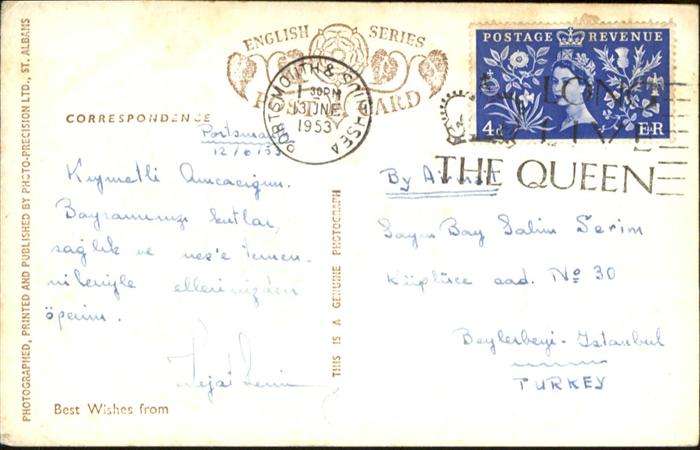 ENGLISH SERIES
POST CARD
PORTSMOUTH & SOUTHSEA
1 30PM
13 JNE
1953
POSTAGE REVENUE
4D
E R
LONG
LIVE
THE QUEEN
CORRESPONDENCE
12/6/53
Kıymetli Amcacığım.
Bayramınızı kutlar,
sağlık ve neş'e temen-
nileriyle ellerinizden
öperim.
Best Wishes from
PHOTOGRAPHED, PRINTED AND PUBLISHED BY PHOTO-PRECISION LTD., ST. ALBANS
THIS IS A GENUINE PHOTOGRAPH
By Airmail
Sayın Bay Salim Serim
Küplüce cad. No 30
Beylerbeyi - Istanbul
TURKEY